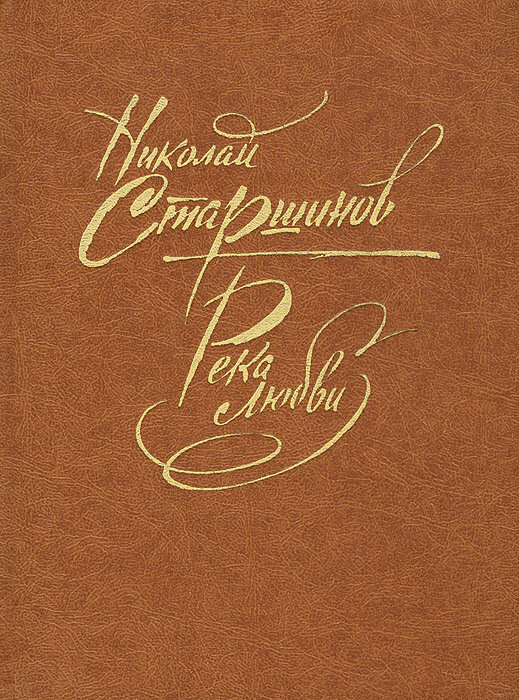 Николай
Старшинов
Река
любви